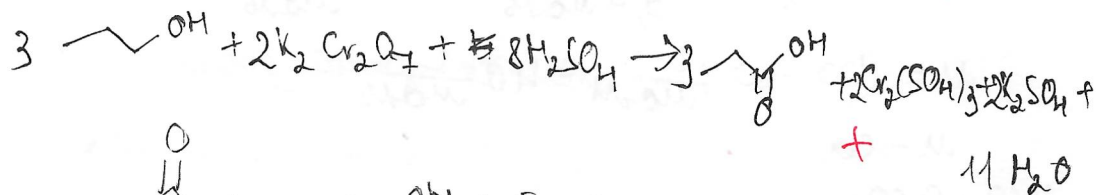 3 OH + 2K2Cr2O7 + 8H2SO4 → 3 OH O + 2Cr2(SO4)3 + 2K2SO4 +
+ 11 H2O
O